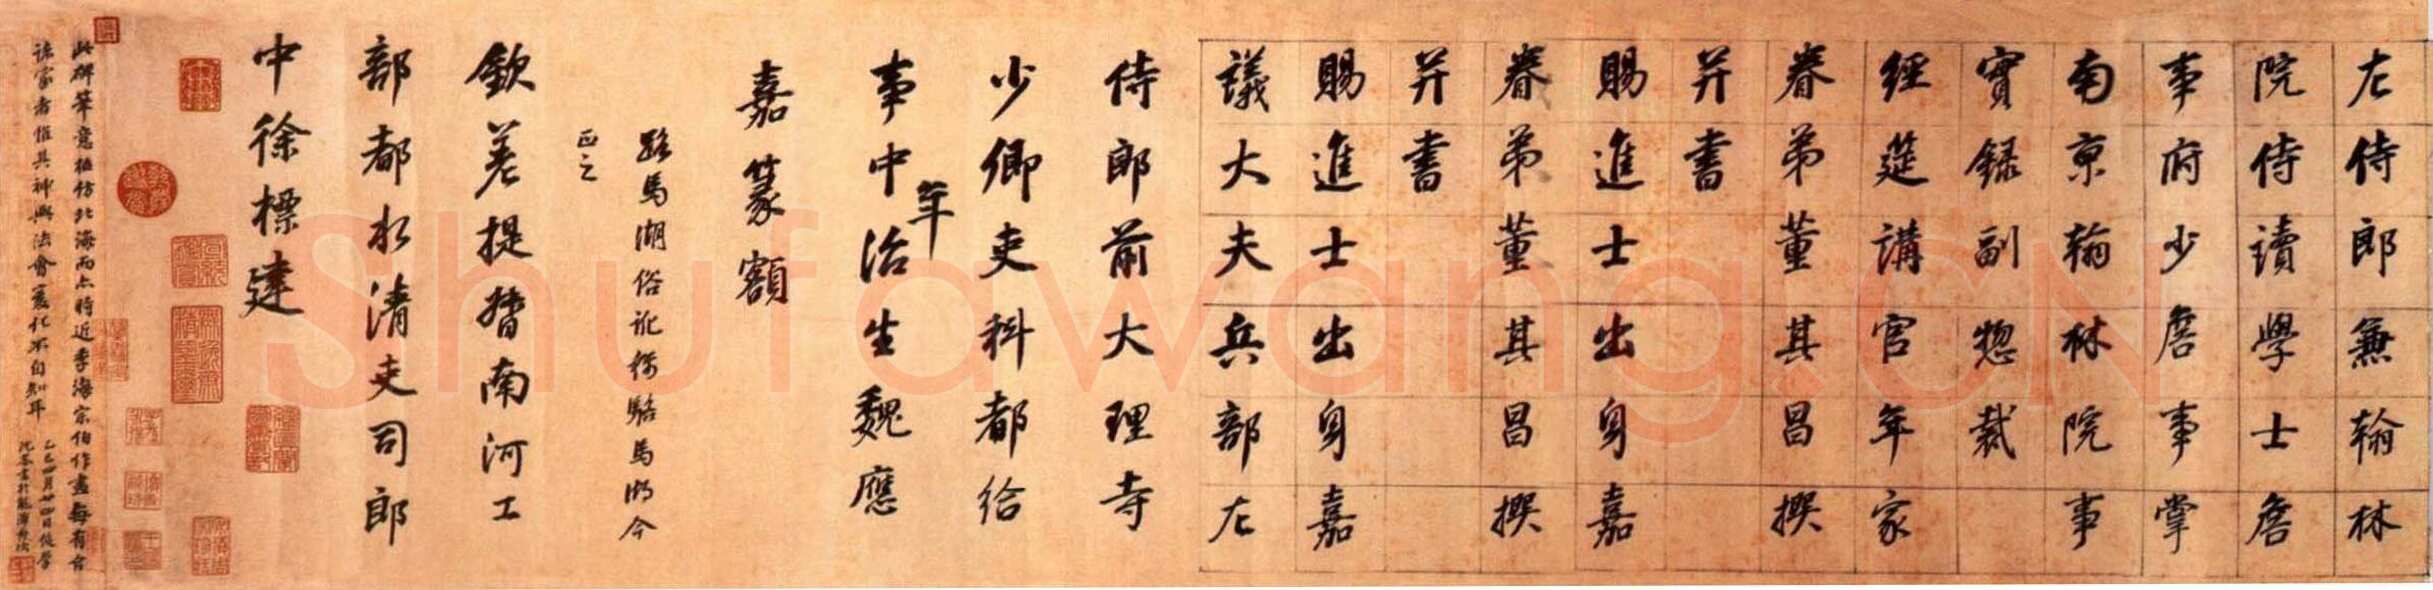 左侍郎兼翰林
院侍讀學士詹
事府少詹事掌
南京翰林院事
實録副惣裁
經筵講官年家
眷弟董其昌撰
并書
賜進士出身嘉
眷弟董其昌撰
并書
賜進士出身嘉
議大夫兵部左
侍郎前大理寺
少卿吏科都給
年
事中治生魏應
嘉篆額
路馬湖俗訛稱駱馬湖今
正之
欽差提督南河工
部都水清吏司郎
中徐標建
此碑筆意雖仿北海而亦時近季海宗伯作書每有合
諸家者惟其神與法會變化不自知耳
乙巳四月廿四日後學
沈荃書於
Shufawang.CN